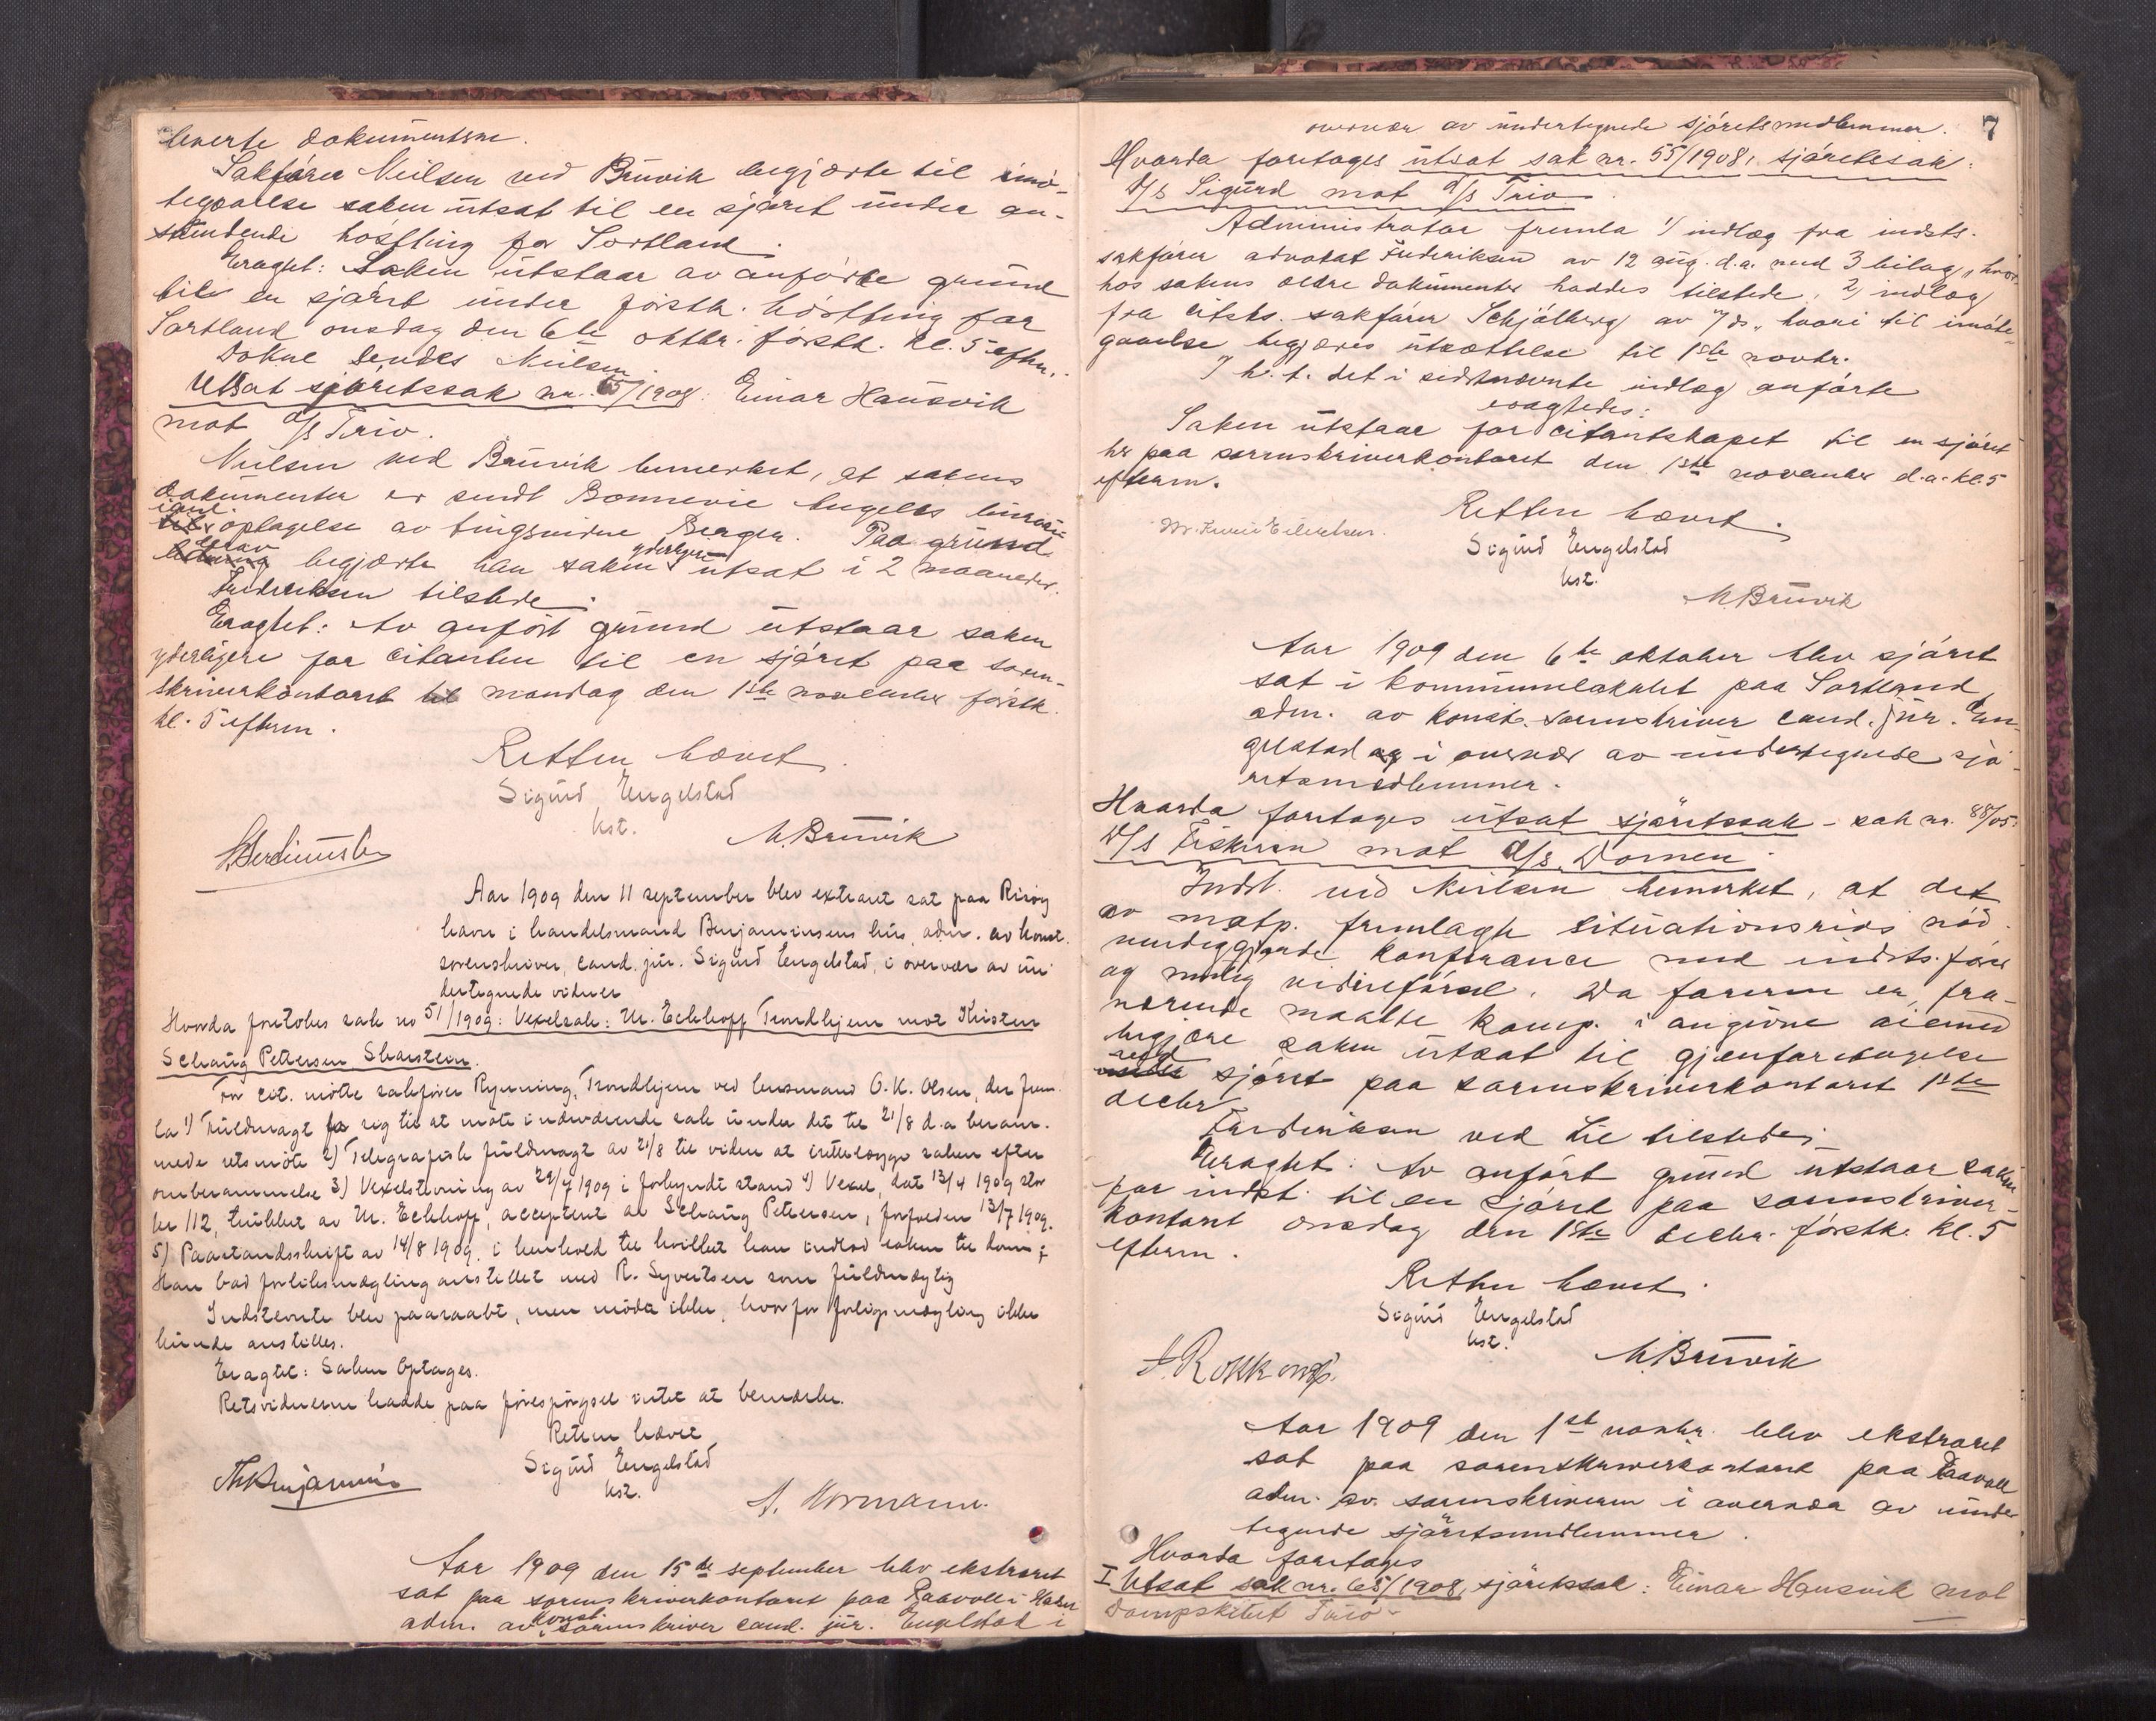 leverte dokumenterne.
Sakfører Nielsen ved Brüvik begjærte til imø-
tegaaelse saken utsat til en sjøret under an-
stundende høstting for Sortland.
Eragtet: Saken utstaar av anførte grund
til en sjøret under førstk. høstting for
Sortland onsdag den 6te oktbr. førstk. kl. 5 efterm.
Dokne sendes Nielsen.
Utsat sjøretssak nr. 65/1908: Einar Hansvik
mot d/s Trio.
Nielsen ved Brüvik bemerket, at sakens
dokumenter er sendt Bonnevie Engelts
oplagelse av tingsvidne Bergen. Paa grund
herav begjærte han saken yderligere utsat i 2 maaneder.
Frederiksen tilstede.
Eragtet: Av anført grund utstaar saken
yderligere for citanten til en sjøret paa soren-
skriverkontoret til mandag den 1ste november førstk.
kl. 5 efterm.
Retten hævet.
Sigurd Engelstad
kst.
M. Brüvik
Aar 1909 den 11 september blev extraret sat paa Risøy
havn i handelsmand Benjaminsens hus, adm. av konst.
sorenskriver, cand. jur. Sigurd Engelstad, i overvær av un
dertegnede vidner
Hvorda foretokes sak no 51/1909: Vexelsak: M. Eckhoff Trondhjem mot Kristen
Schaug Pettersen Skarstein.
For cit. møtte sakfører Rynning, Trondhjem ved lensmand O. K. Olsen, der frem
la 1) Fuldmagt for sig til at møte i nærværende sak under det til 21/8 d.a beram-
mede retsmøte 2) Telegrafisk fuldmagt av 21/8 til viden at indlægge saken efter
omberammelse 3) Vexelstevning av 29/7 1909 i forkyndt stand 4) Vexel, dat 13/4 1909 stor
kr 112, trukket av M. Eckhoff, acceptert av Schaug Petersen, forfalden 13/7 1909.
5) Paastandsskrift av 14/8 1909. i henhold til hvilket han indlod saken til dom;
Han bad forliksmægling anstillet med R. Syvertsen som fuldmægtig
Indstevnte blev paaraabt, men mødte ikke, hvorfor forligsmægling ikke
kunde anstilles.
Eragtet: Saken Optages.
Retsvidnerne hadde paa forespørgsel intet at bemærke.
Retten hævet
Sigurd Engelstad
kst.
A. Normann.
Aar 1909 den 15de september blev ekstraret
sat paa sorenskriverkontoret paa Raavoll i Hadsel
adm. av konst. sorenskriver cand. jur. Engelstad i
7
overvær av undertegnede sjøretsmedlemmer.
Hvorda foretages utsat sak nr. 55/1908, sjøretssak:
D/s Sigurd mot d/s Trio
Administrator fremla 1/ indlæg fra indsts.
sakfører advokat Frederiksen av 12 aug. d.a. med 3 bilag, hvor-
hos sakens ældre dokumenter haddes tilstede, 2) indlæg
fra citsts. sakfører Schjølberg av 7/ds., hvori til imøte-
gaaelse begjæres utsættelse til 1ste novbr.
I h. t. det i sidstnævnte indlæg anførte
eragtedes:
Saken utstaar for citantskapet til en sjøret
her paa sorenskriverkontoret den 1ste november d.a. kl. 5
efterm.
Retten hævet.
Sigurd Engelstad
kst.
M. Brüvik
Aar 1909 den 6te oktober blev sjøret
sat i kommunelokalet paa Sortland,
adm. av konst. sorenskriver cand. jur. En-
gelstad og i overvær av undertegnede sjø-
retsmedlemmer.
Hvorda foretages utsat sjøretssak - sak nr. 88/05:
D/s Fiskeren mot d/s. Dornen.
Indst. ved Nielsen bemerket, at det
av motp. fremlagte situationsrids nød-
vendiggjorde konferance med indsts. fører
og mulig vidneførsel. Da føreren er fra-
værende maatte komp. i angivne øiemed
begjære saken utsat til gjenforetagelse
ved sjøret paa sorenskriverkontoret 1ste
decbr.
Frederiksen ved Lie tilstede.
Eragtet: Av anført grund utstaar saken
for indst. til en sjøret paa sorenskriver-
kontoret onsdag den 1ste decbr. førstk. kl. 5
efterm.
Retten hævet.
Sigurd Engelstad
kst.
M. Brüvik
Aar 1909 den 1st novbr. blev ekstraret
sat paa sorenskriverkontoret paa Raavoll
adm. av sorenskriveren i overvær av under
tegnede sjøretsmedlemmer.
Hvorda foretages
I Utsat sak nr. 65/1908, sjøretssak: Einar Hansvik mot
Dampskibet Trio-